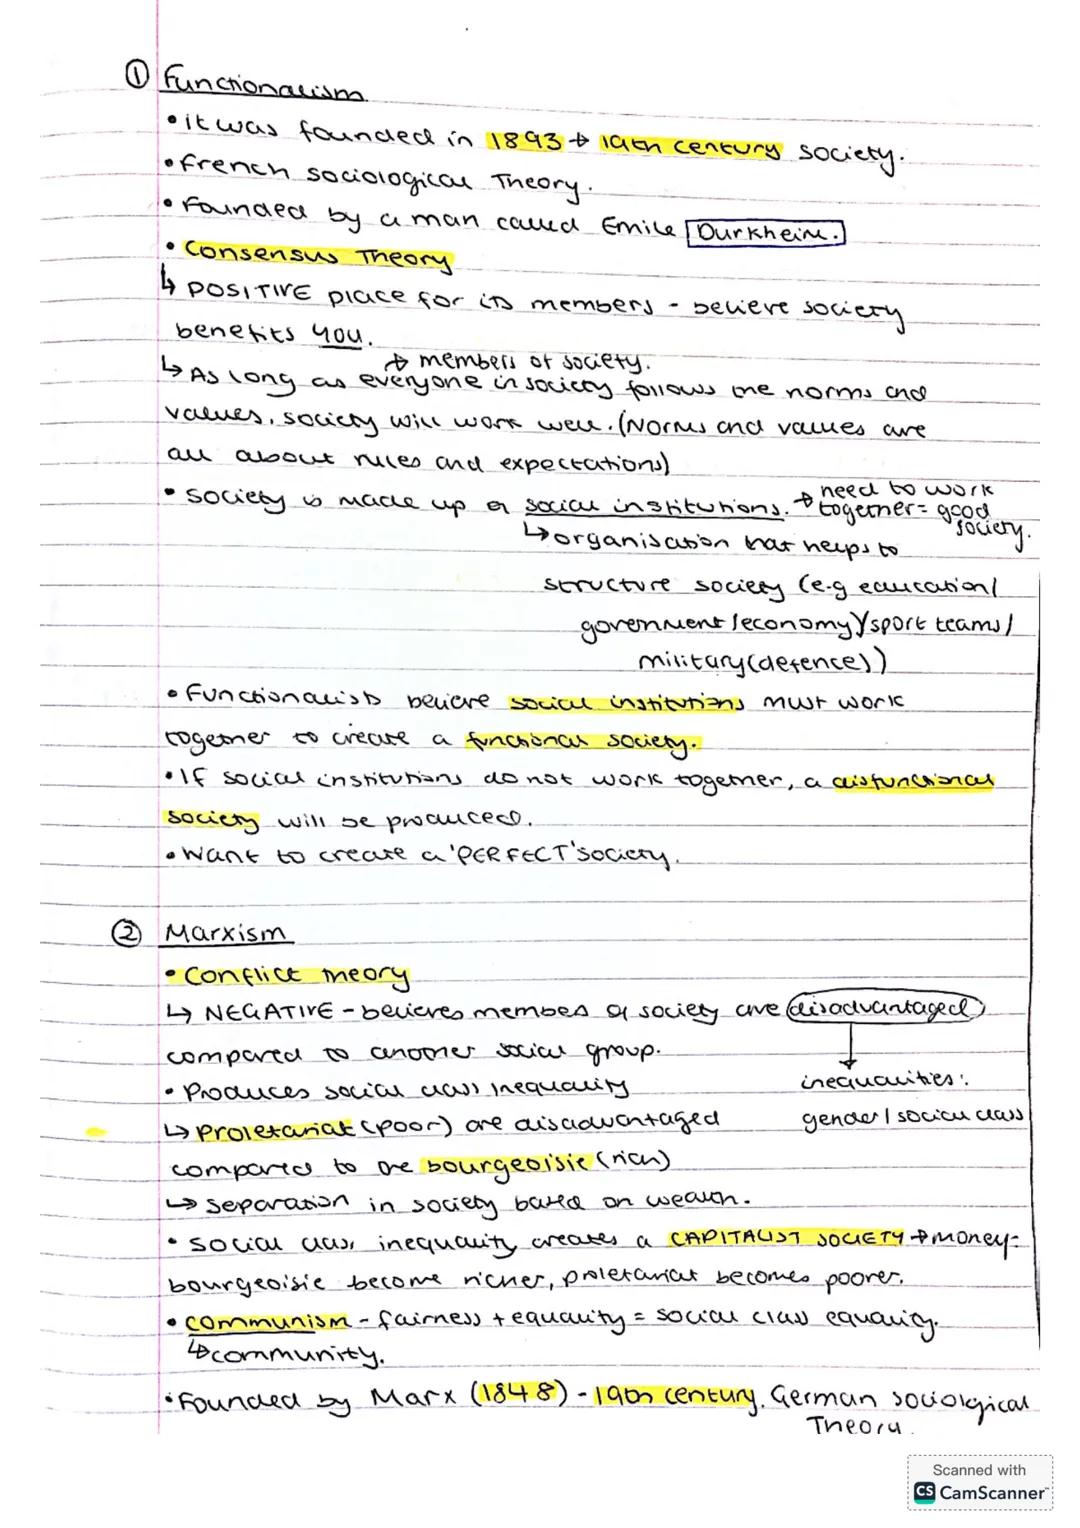 ① Functionalism
• it was founded in 1893 → 19th century society.
• French sociological Theory.
• Founded by a man called Emile Durkheim.
• Consensus Theory
↳ POSITIVE place for its members - believe society
benefits you.
→ members of society.
↳ As long as everyone in society follows the norms and
values, society will work well. (Norms and values are
all about rules and expectations)
• society is made up of social institutions. → need to work
together = good
society.
↳ organisation that helps to
structure society (e.g education/
government/economy/sport teams/
military(defence))
• Functionalists believe social institutions must work
together to create a functional society.
• If social institutions do not work together, a disfunctional
society will be produced.
• Want to create a 'PERFECT' society.
② Marxism
• Conflict theory
↳ NEGATIVE - believes members of society are disadvantaged
compared to another social group.
inequalities:
gender/social class
• Produces social class inequality
↳ Proletariat (poor) are disadvantaged
compared to the bourgeoisie (rich)
↳ separation in society based on wealth.
• social class inequality creates a CAPITALIST SOCIETY → money-
bourgeoisie become richer, proletariat becomes poorer.
• communism - fairness + equality = social class equality.
↳ community.
• Founded by Marx (1848) - 19th century. German sociolgical
Theory.
Scanned with
CS CamScanner